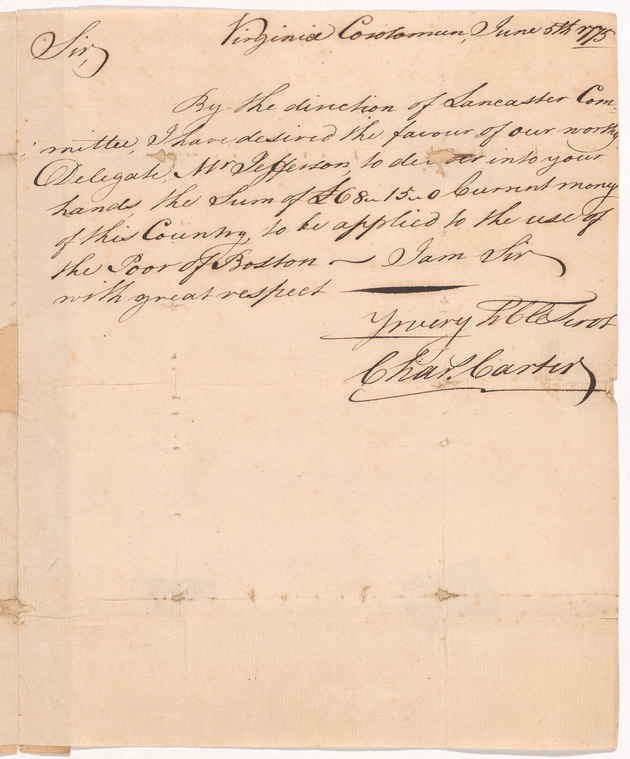 Virginia Corotoman, June 5th 1775
Sir,
By the direction of Lancaster Com-
mittee, I have desired the favour of our worthy
Delegate, Mr Jefferson, to deliver into your
hands, the Sum of £68..15..0 Current money
of this Country, to be applied to the use of
the Poor of Boston ~ I am Sir
with great respect
Yr very Hble Servt
Chas. Carter